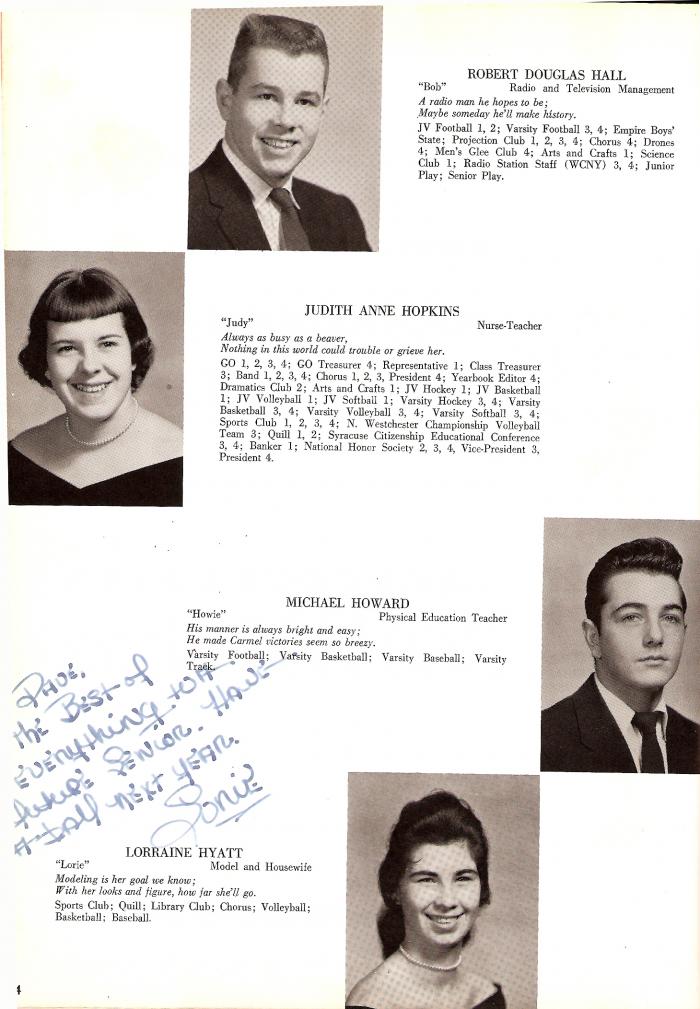 ROBERT DOUGLAS HALL
"Bob" Radio and Television Management
A radio man he hopes to be;
Maybe someday he'll make history.
JV Football 1, 2; Varsity Football 3, 4; Empire Boys'
State; Projection Club 1, 2, 3, 4; Chorus 4; Drones
4; Men's Glee Club 4; Arts and Crafts 1; Science
Club 1; Radio Station Staff (WCNY) 3, 4; Junior
Play; Senior Play.
JUDITH ANNE HOPKINS
"Judy" Nurse-Teacher
Always as busy as a beaver,
Nothing in this world could trouble or grieve her.
GO 1, 2, 3, 4; GO Treasurer 4; Representative 1; Class Treasurer
3; Band 1, 2, 3, 4; Chorus 1, 2, 3, President 4; Yearbook Editor 4;
Dramatics Club 2; Arts and Crafts 1; JV Hockey 1; JV Basketball
1; JV Volleyball 1; JV Softball 1; Varsity Hockey 3, 4; Varsity
Basketball 3, 4; Varsity Volleyball 3, 4; Varsity Softball 3, 4;
Sports Club 1, 2, 3, 4; N. Westchester Championship Volleyball
Team 3; Quill 1, 2; Syracuse Citizenship Educational Conference
3, 4; Banker 1; National Honor Society 2, 3, 4, Vice-President 3,
President 4.
MICHAEL HOWARD
"Howie" Physical Education Teacher
His manner is always bright and easy;
He made Carmel victories seem so breezy.
Varsity Football; Varsity Basketball; Varsity Baseball; Varsity
Track.
Dave,
the Best of
everything to a
future Senior. Have
a ball next year.
Lorrie
LORRAINE HYATT
"Lorie" Model and Housewife
Modeling is her goal we know;
With her looks and figure, how far she'll go.
Sports Club; Quill; Library Club; Chorus; Volleyball;
Basketball; Baseball.